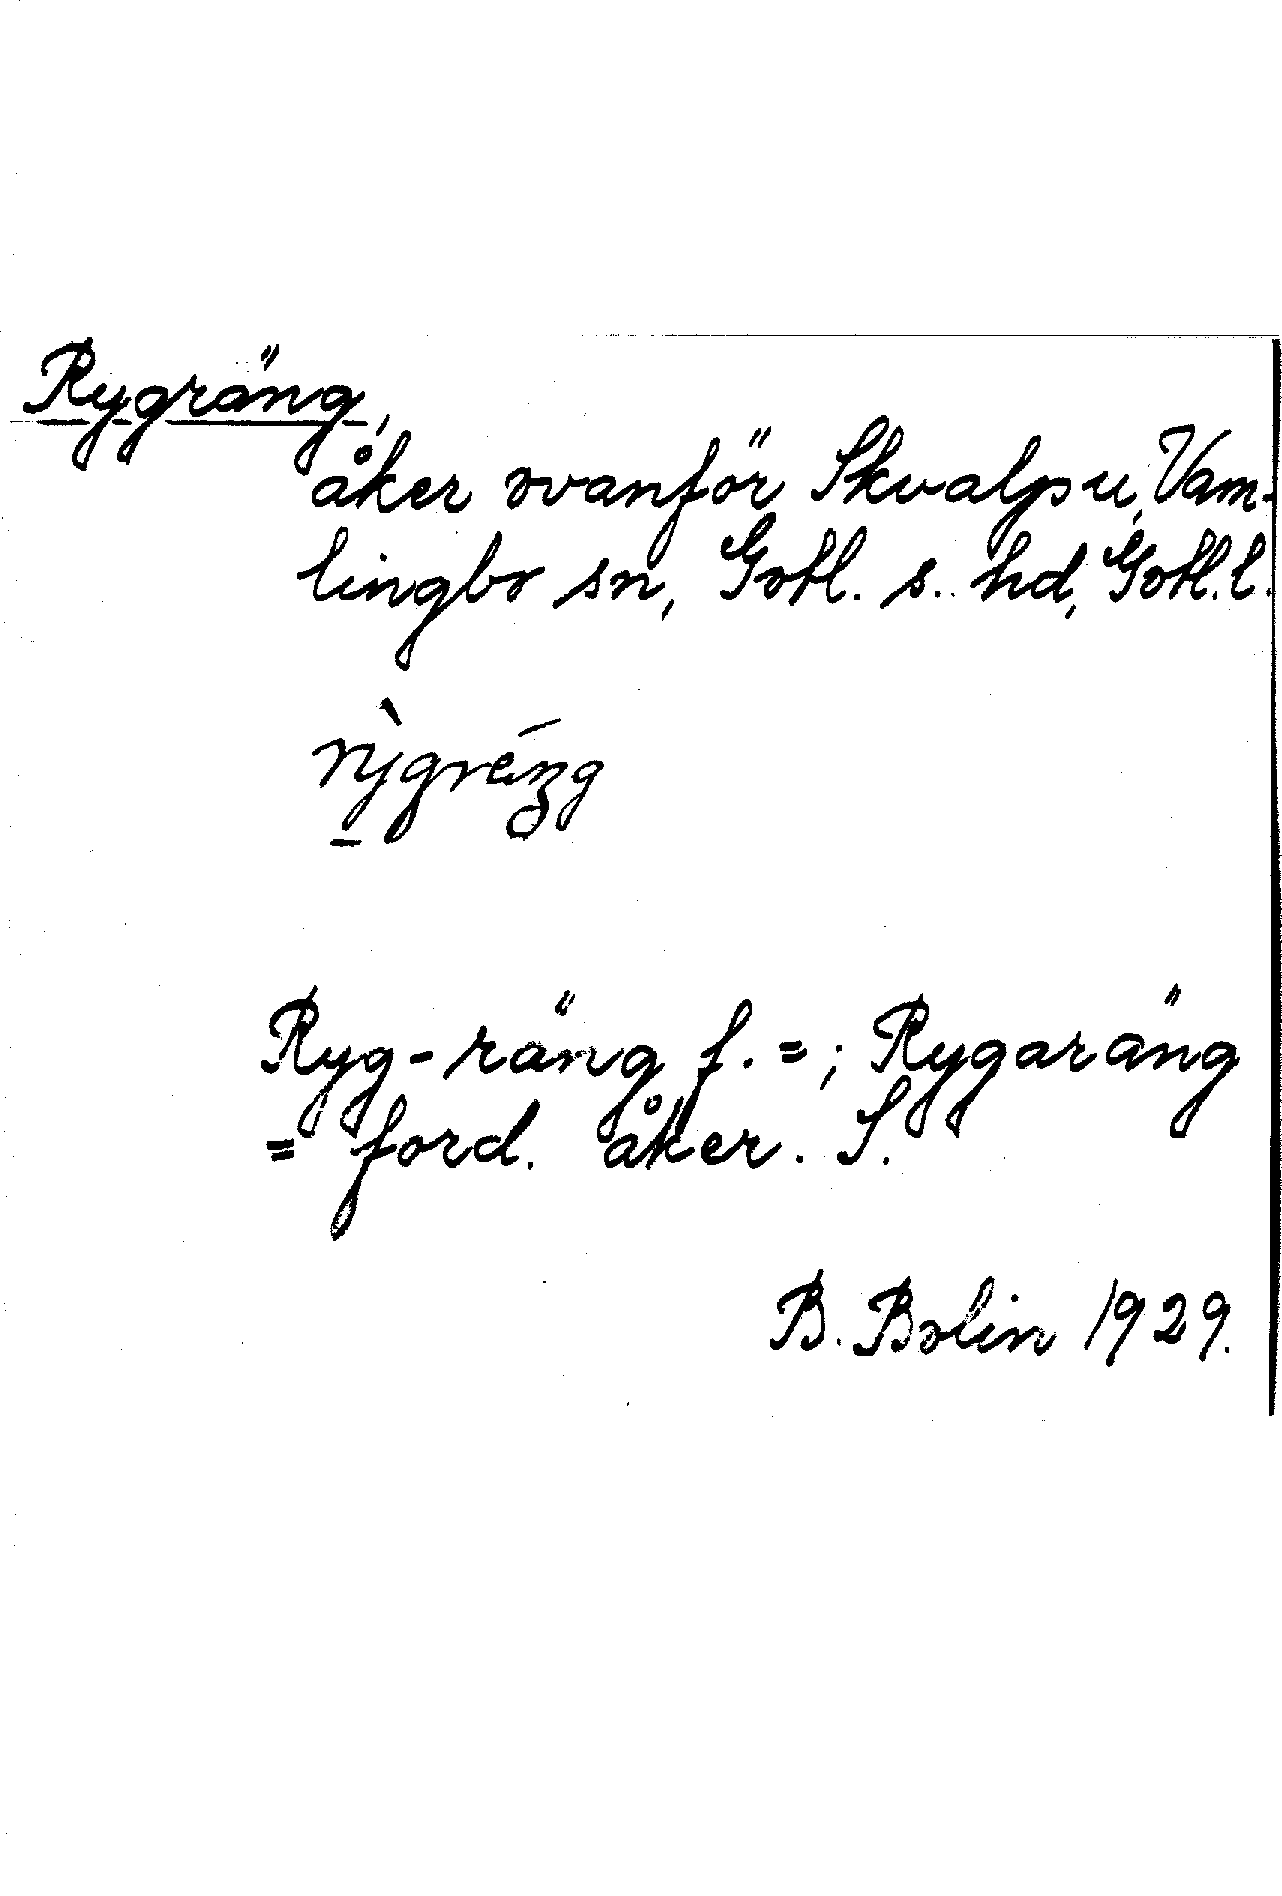 Rygräng,
åker ovanför Skvalpu, Vam-
lingbo sn, Gotl. s. hd, Gotl. l.
Ryg-räng f. = ; Rygaräng
= ford. åker. S.
B. Bolin 1929.